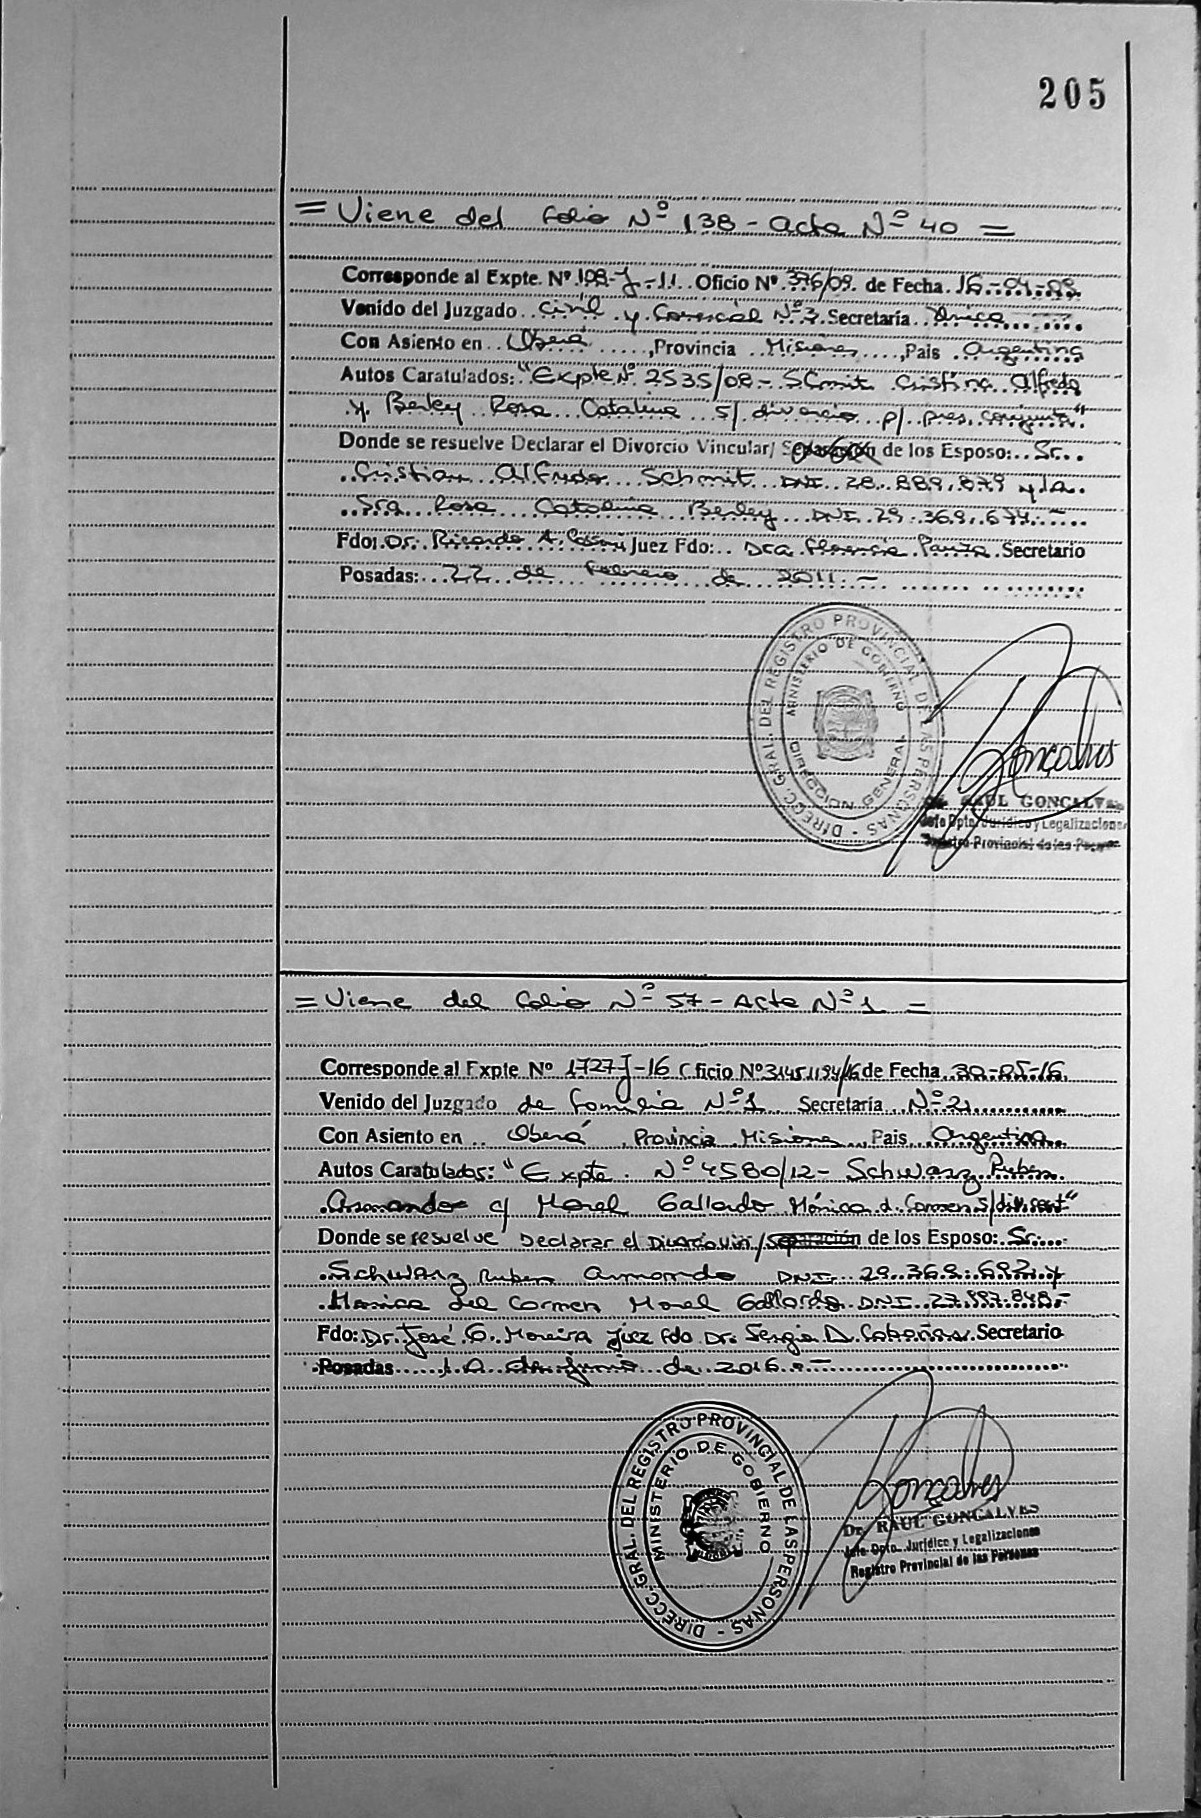 205
= Viene del Folio Nº 138 - Acta Nº 40 =
Corresponde al Expte. Nº 198-J-11. Oficio Nº 376/09. de Fecha. 16-04-09
Venido del Juzgado Civil y Comercial Nº 3. Secretaría Única
Con Asiento en Oberá, Provincia Misiones, Pais Argentina
Autos Caratulados: "Expte Nº 2535/08 - Schmit Cristina Alfredo
y Berley Rosa Catalina S/ divorcio p/ pres. conjunta"
Donde se resuelve Declarar el Divorcio Vincular/ Separación de los Esposo: Sr.
Cristian Alfredo Schmit DNI 28.889.879 y la
Sra Rosa Catalina Berley DNI 29.369.674.-
Fdo: Dr. Ricardo A. Juez Fdo: Dra Florencia Secretario
Posadas: 22 de Febrero de 2011 -
DIRECC. GRAL. DEL REGISTRO PROVINCIAL DE LAS PERSONAS -
MINISTERIO DE GOBIERNO
DIRECCION GENERAL
Gonçalves
Dr. RAUL GONCALVES
Jefe Dpto. Jurídico y Legalizaciones
Registro Provincial de las Personas
= Viene del Folio Nº 57 - Acta Nº 1 =
Corresponde al Expte Nº 1727-J-16 Oficio Nº 3145/1194/16 de Fecha 30-05-16
Venido del Juzgado de Familia Nº 1 Secretaría Nº 2
Con Asiento en Oberá, Provincia Misiones, Pais Argentina
Autos Caratulados: "Expte. Nº 4580/12 - Schwarz Ruben
Armando c/ Morel Gallardo Mónica d. Carmen S/
Donde se resuelve Declarar el Divorcio Vin/ Separación de los Esposo: Sr.
Schwarz Ruben Armando DNI. 29.369.692 y
Monica del Carmen Morel Gallardo DNI 27.997.848.-
Fdo: Dr. José G. Moreira Juez Fdo Dr. Sergio D. Cabañas. Secretario
Posadas 10 de junio de 2016.-
DIRECC. GRAL. DEL REGISTRO PROVINCIAL DE LAS PERSONAS -
MINISTERIO DE GOBIERNO
Gonçalves
Dr. RAUL GONCALVES
Jefe Dpto. Jurídico y Legalizaciones
Registro Provincial de las Personas